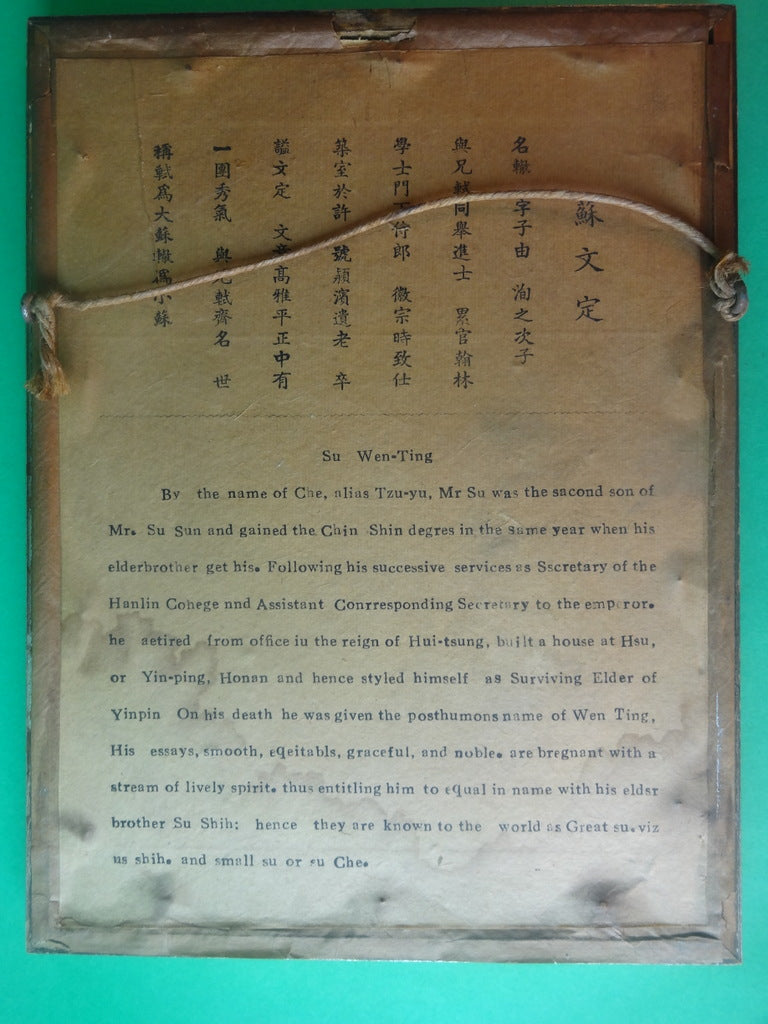 蘇文定
名轍 字子由 洵之次子
與兄軾同舉進士 累官翰林
學士門下侍郎 徽宗時致仕
築室於許 號潁濱遺老 卒
謚文定 文章高雅平正中有
一團秀氣 與兄軾齊名 世
稱軾爲大蘇轍爲小蘇
Su Wen-Ting
By the name of Che, alias Tzu-yu, Mr Su was the sacond son of
Mr. Su Sun and gained the Chin Shin degres in the same year when his
elderbrother get his. Following his successive services as Sscretary of the
Hanlin Cohege nnd Assistant Conrresponding Secretary to the emperor.
he aetired from office iu the reign of Hui-tsung, built a house at Hsu,
or Yin-ping, Honan and hence styled himself as Surviving Elder of
Yinpin On his death he was given the posthumons name of Wen Ting,
His essays, smooth, eqeitabls, graceful, and noble. are bregnant with a
stream of lively spirit. thus entitling him to equal in name with his eldsr
brother Su Shih; hence they are known to the world as Great su. viz
us shih. and small su or su Che.